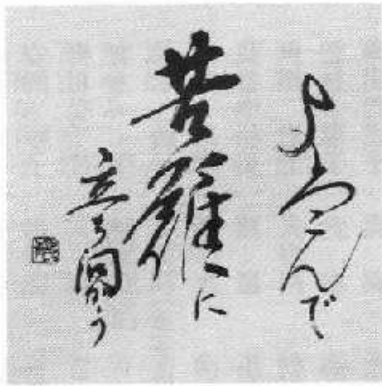 よろこんで
苦難に
立ち向かう